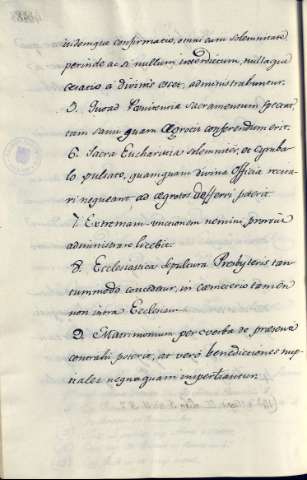 itidemque confirmatio, omni cum solemnitate
perindo ac si nullum interdictum, nullaque
cesatio à divinis esset, administrabuntur.
5. Quoad Penitencia Sacramentum spectat,
tam sanis quam ægrotis conferendum erit.
6. Sacra Eucharitia solemniter, et cymba-
lo pulsato, quamquam divina officia recita-
ri nequeant, ad ægrotos defferri poterit.
7. Extremam-uncionem nemini prorsus
administrare licebit.
8. Ecclesiastica sepulcura Presbyteris tan-
tummodo concedatur, in cœmeterio tamen
non intra Ecclesiam.
9. Matrimonium per verba de presenti
contrahi poterit, at verò benedictiones nup-
tiales nequaquam impertiantur.